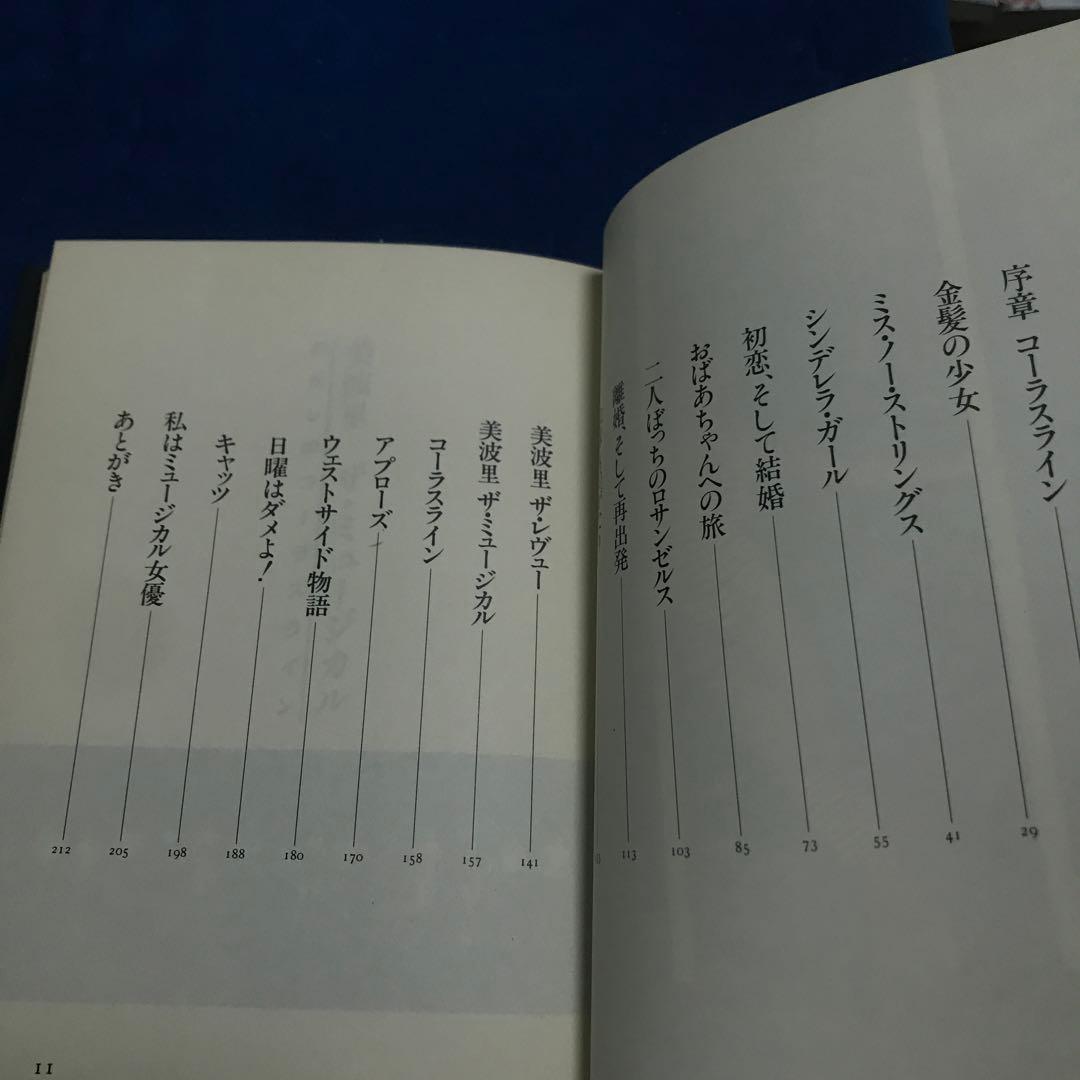 序章 コーラスライン
金髪の少女 29
ミス・ノー・ストリングス 41
シンデレラ・ガール 55
初恋、そして結婚 73
おばあちゃんへの旅 85
二人ぼっちのロサンゼルス 103
離婚、そして再出発 113
美波里 ザ・レヴュー 141
美波里 ザ・ミュージカル 157
コーラスライン 158
アプローズ 170
ウェストサイド物語 180
日曜はダメよ！ 188
キャッツ 198
私はミュージカル女優 205
あとがき 212
11